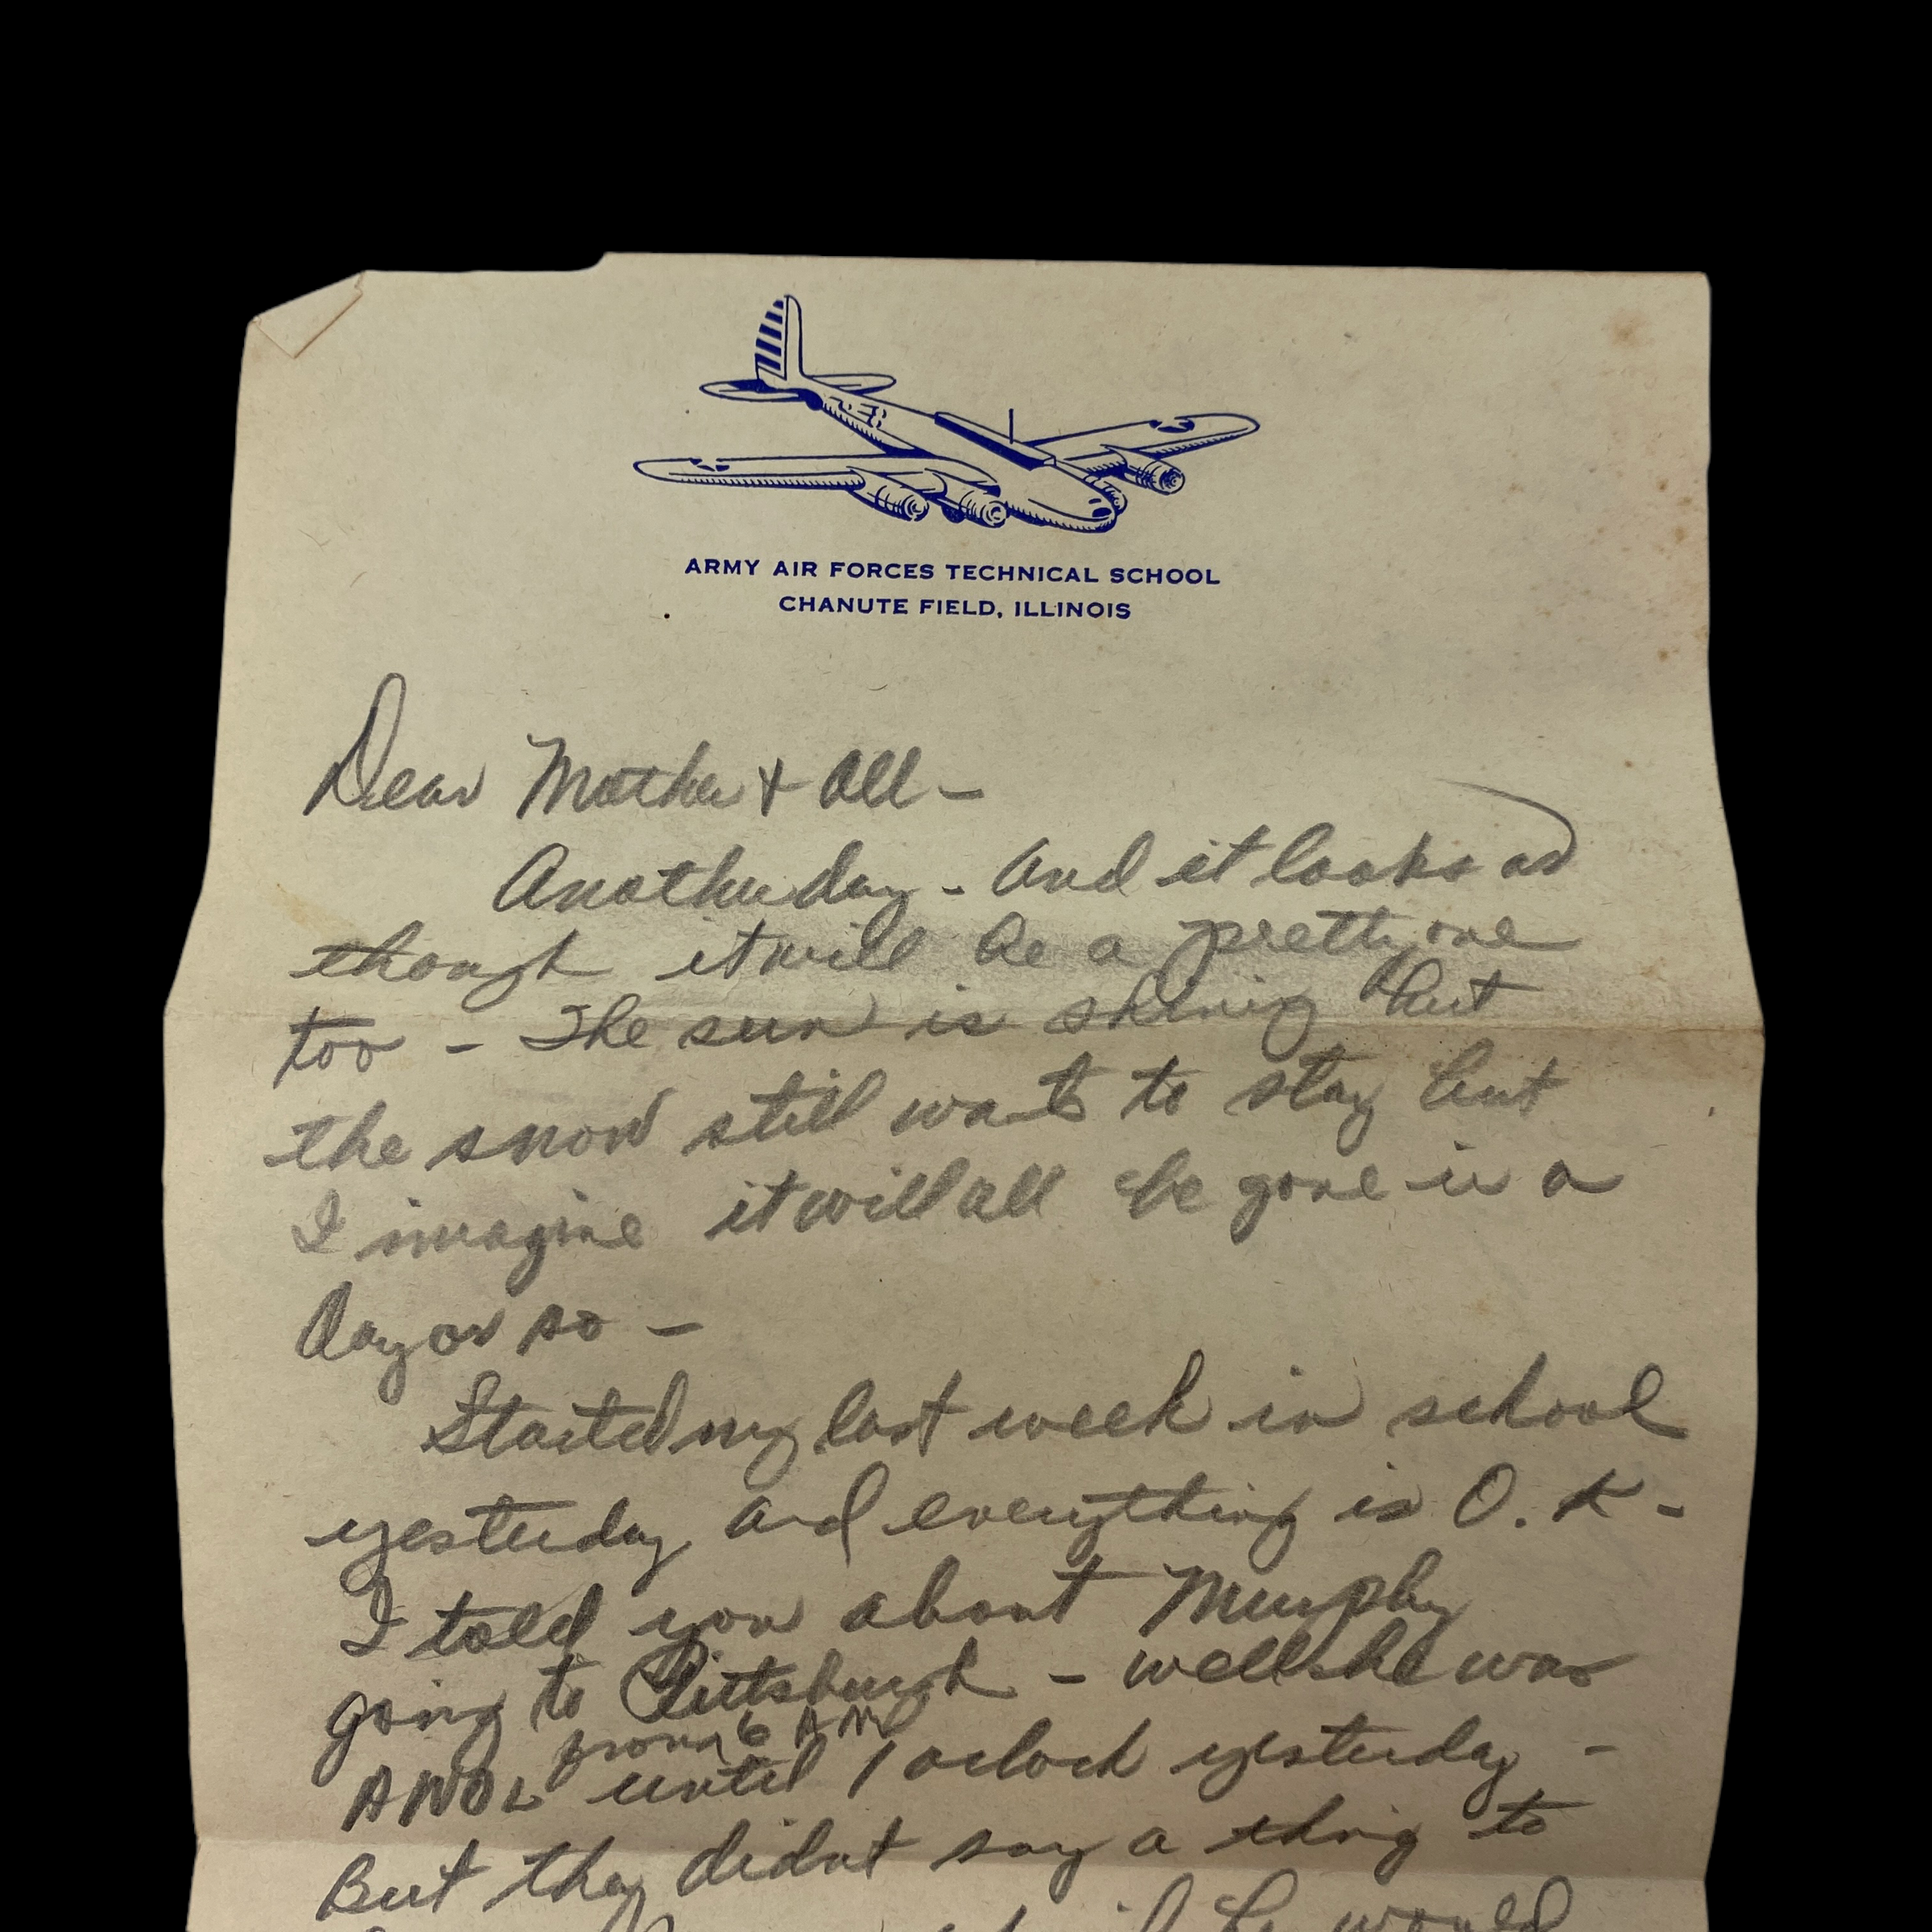 ARMY AIR FORCES TECHNICAL SCHOOL
CHANUTE FIELD, ILLINOIS
Dear Mother + all -
Another day - and it looks as
though it will be a pretty one
too - The sun is shining but
the snow still wants to stay but
I imagine it will all be gone in a
day or so -
Started my last week in school
yesterday and everything is O.K -
I told you about Murphy
going to Pittsburgh - well she was
from 6 AM
AWOL until 1 oclock yesterday -
But they didnt say a thing to
would